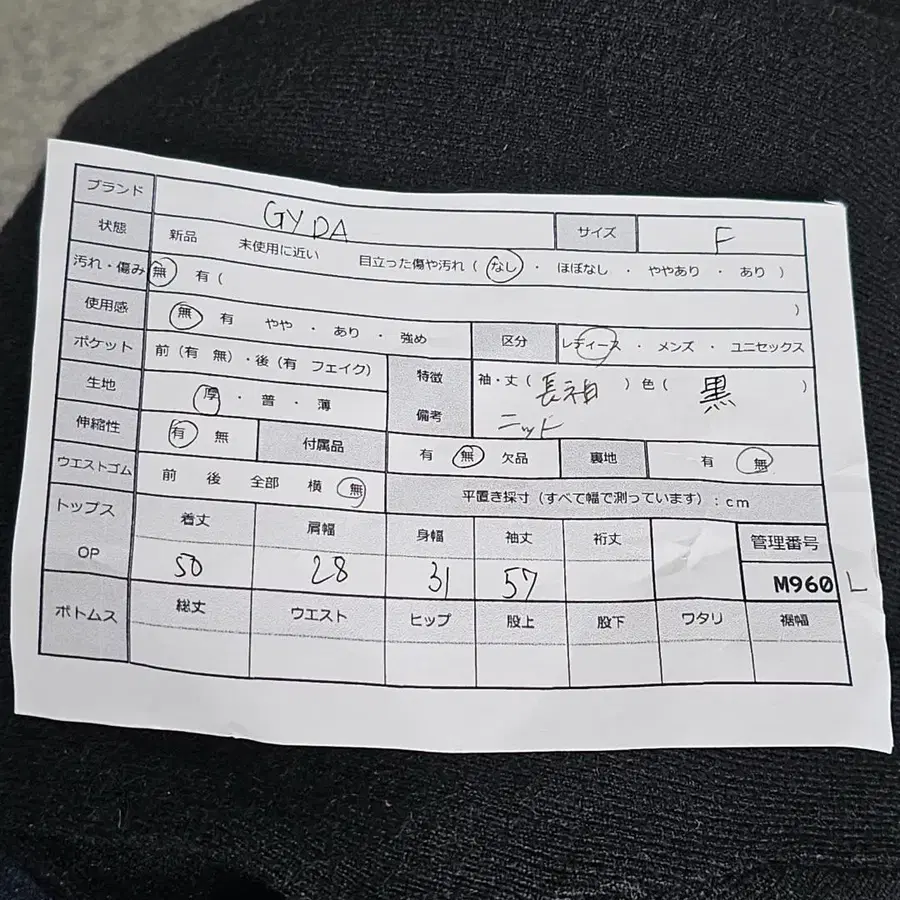 ブランド GYDA サイズ F
状態 新品 未使用に近い 目立った傷や汚れ( なし ・ ほぼなし ・ ややあり ・ あり )
汚れ・傷み 無 有( )
使用感 無 有 やや ・ あり ・ 強め 区分 レディース ・ メンズ ・ ユニセックス
ポケット 前(有 無)・後(有 フェイク) 特徴 袖・丈( 長袖 )色( 黒 )
生地 厚 ・ 普 ・ 薄 備考 ニット
伸縮性 有 無 付属品 有 無 欠品 裏地 有 無
ウエストゴム 前 後 全部 横 無 平置き採寸(すべて幅で測っています):cm
トップス 着丈 肩幅 身幅 袖丈 裄丈 管理番号
OP 50 28 31 57 M960 L
ボトムス 総丈 ウエスト ヒップ 股上 股下 ワタリ 裾幅